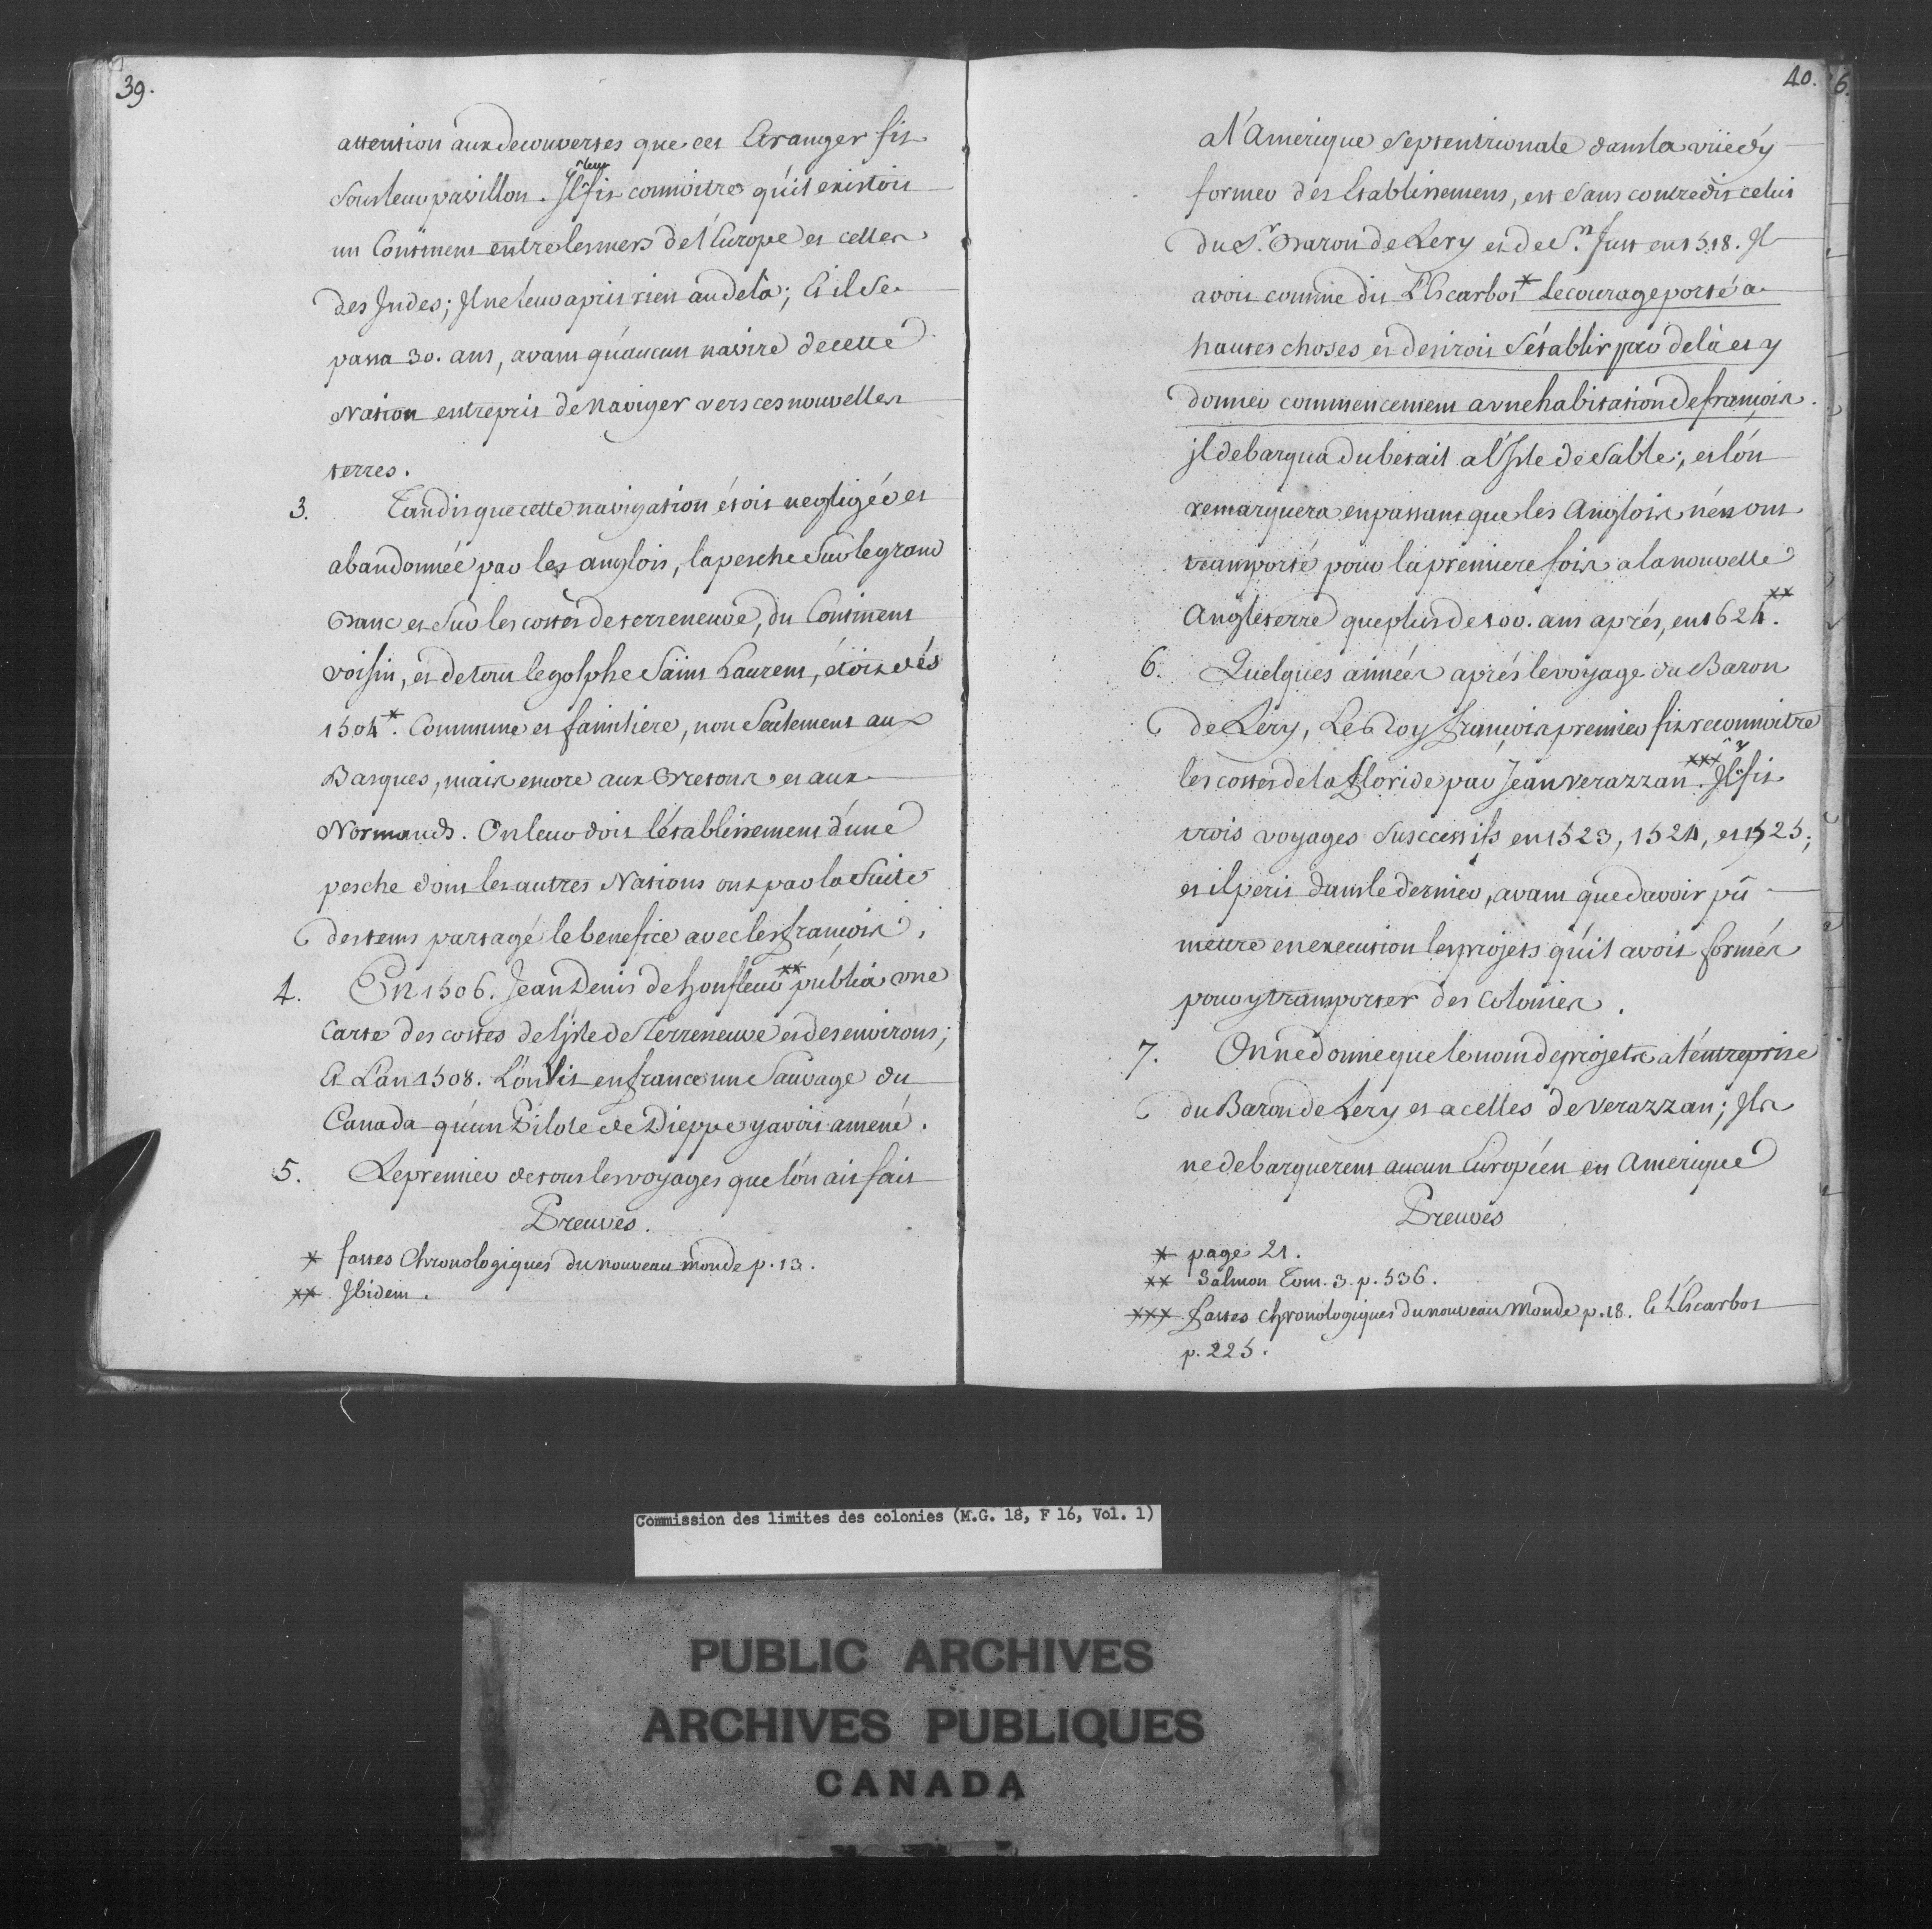 39.
attention aux decouvertes que cet Etranger fit
sous leur pavillon. Il leur fit connoitre qu'il existoit
un Continent entre les mers de l'Europe et celles
des Indes; Il ne leur aprit rien au dela; Et il se
passa 30. ans, avant qu'aucun navire de cette
Nation entreprit de Naviger vers ces nouvelles
terres.
3. Tandis que cette navigation étoit negligée et
abandonnée par les anglois, la pesche sur le grand
Banc et sur les costes de terreneuve, du Continent
voisin, et de tout le golphe Saint Laurent, étoit dés
1504*. Commune et familiere, non seulement aux
Basques, mais encore aux Bretons et aux
Normands. On leur doit l'établissement d'une
pesche dont les autres Nations ont par la suite
des tems partagé le benefice avec les françois.
4. En 1506. Jean Denis de honfleur** publia une
Carte des costes de l'jsle de Terreneuve et des environs;
Et L'an 1508. L'on Vit en france un Sauvage du
Canada qu'un Pilote de Dieppe y avoit amené.
5. Le premier de tous les voyages que l'on ait fait
Preuves.
* fastes Chronologiques du nouveau monde p. 13.
** Ibidem.
40. 6.
a l'Amerique Septentrionale dans la vüe d'y
former des Etablissemens, est sans contredit celui
du S.r Baron de Lery et de S.n Just en 1518. Il
avoit comme dit L'Escarbot* Le courage porté a
hautes choses et desiroit s'établir par dela et y
donner commencement a vne habitation de françois.
jl debarqua du betail a l'Isle de Sable; et l'on
remarquera en passant que les Anglois n'en ont
transporté pour la premiere fois a la nouvelle
Angleterre que plus de 100. ans aprés, en 1624**.
6. Quelques années aprés le voyage du Baron
de Lery, Le Roy françois premier fit reconnoitre
les costes de la floride par Jean verazzan***. Il y fit
trois voyages susccessifs en 1523, 1524, et 1525;
et il perit dans le dernier, avant que d'avoir pû
mettre en execution les projets qu'il avoit formés
pour y transporter des Colonies.
7. On ne donne que le nom de projets a l'entreprise
du Baron de Lery et a celles de verazzan; Ils
ne debarquerent aucun Européen en Amerique
Preuves
* page 21.
** Salmon Tom. 3. p. 536.
*** fastes chronologiques du nouveau Monde p. 18. Et L'Escarbot
p. 225.
Commission des limites des colonies (M.G. 18, F 16, Vol. 1)
PUBLIC ARCHIVES
ARCHIVES PUBLIQUES
CANADA